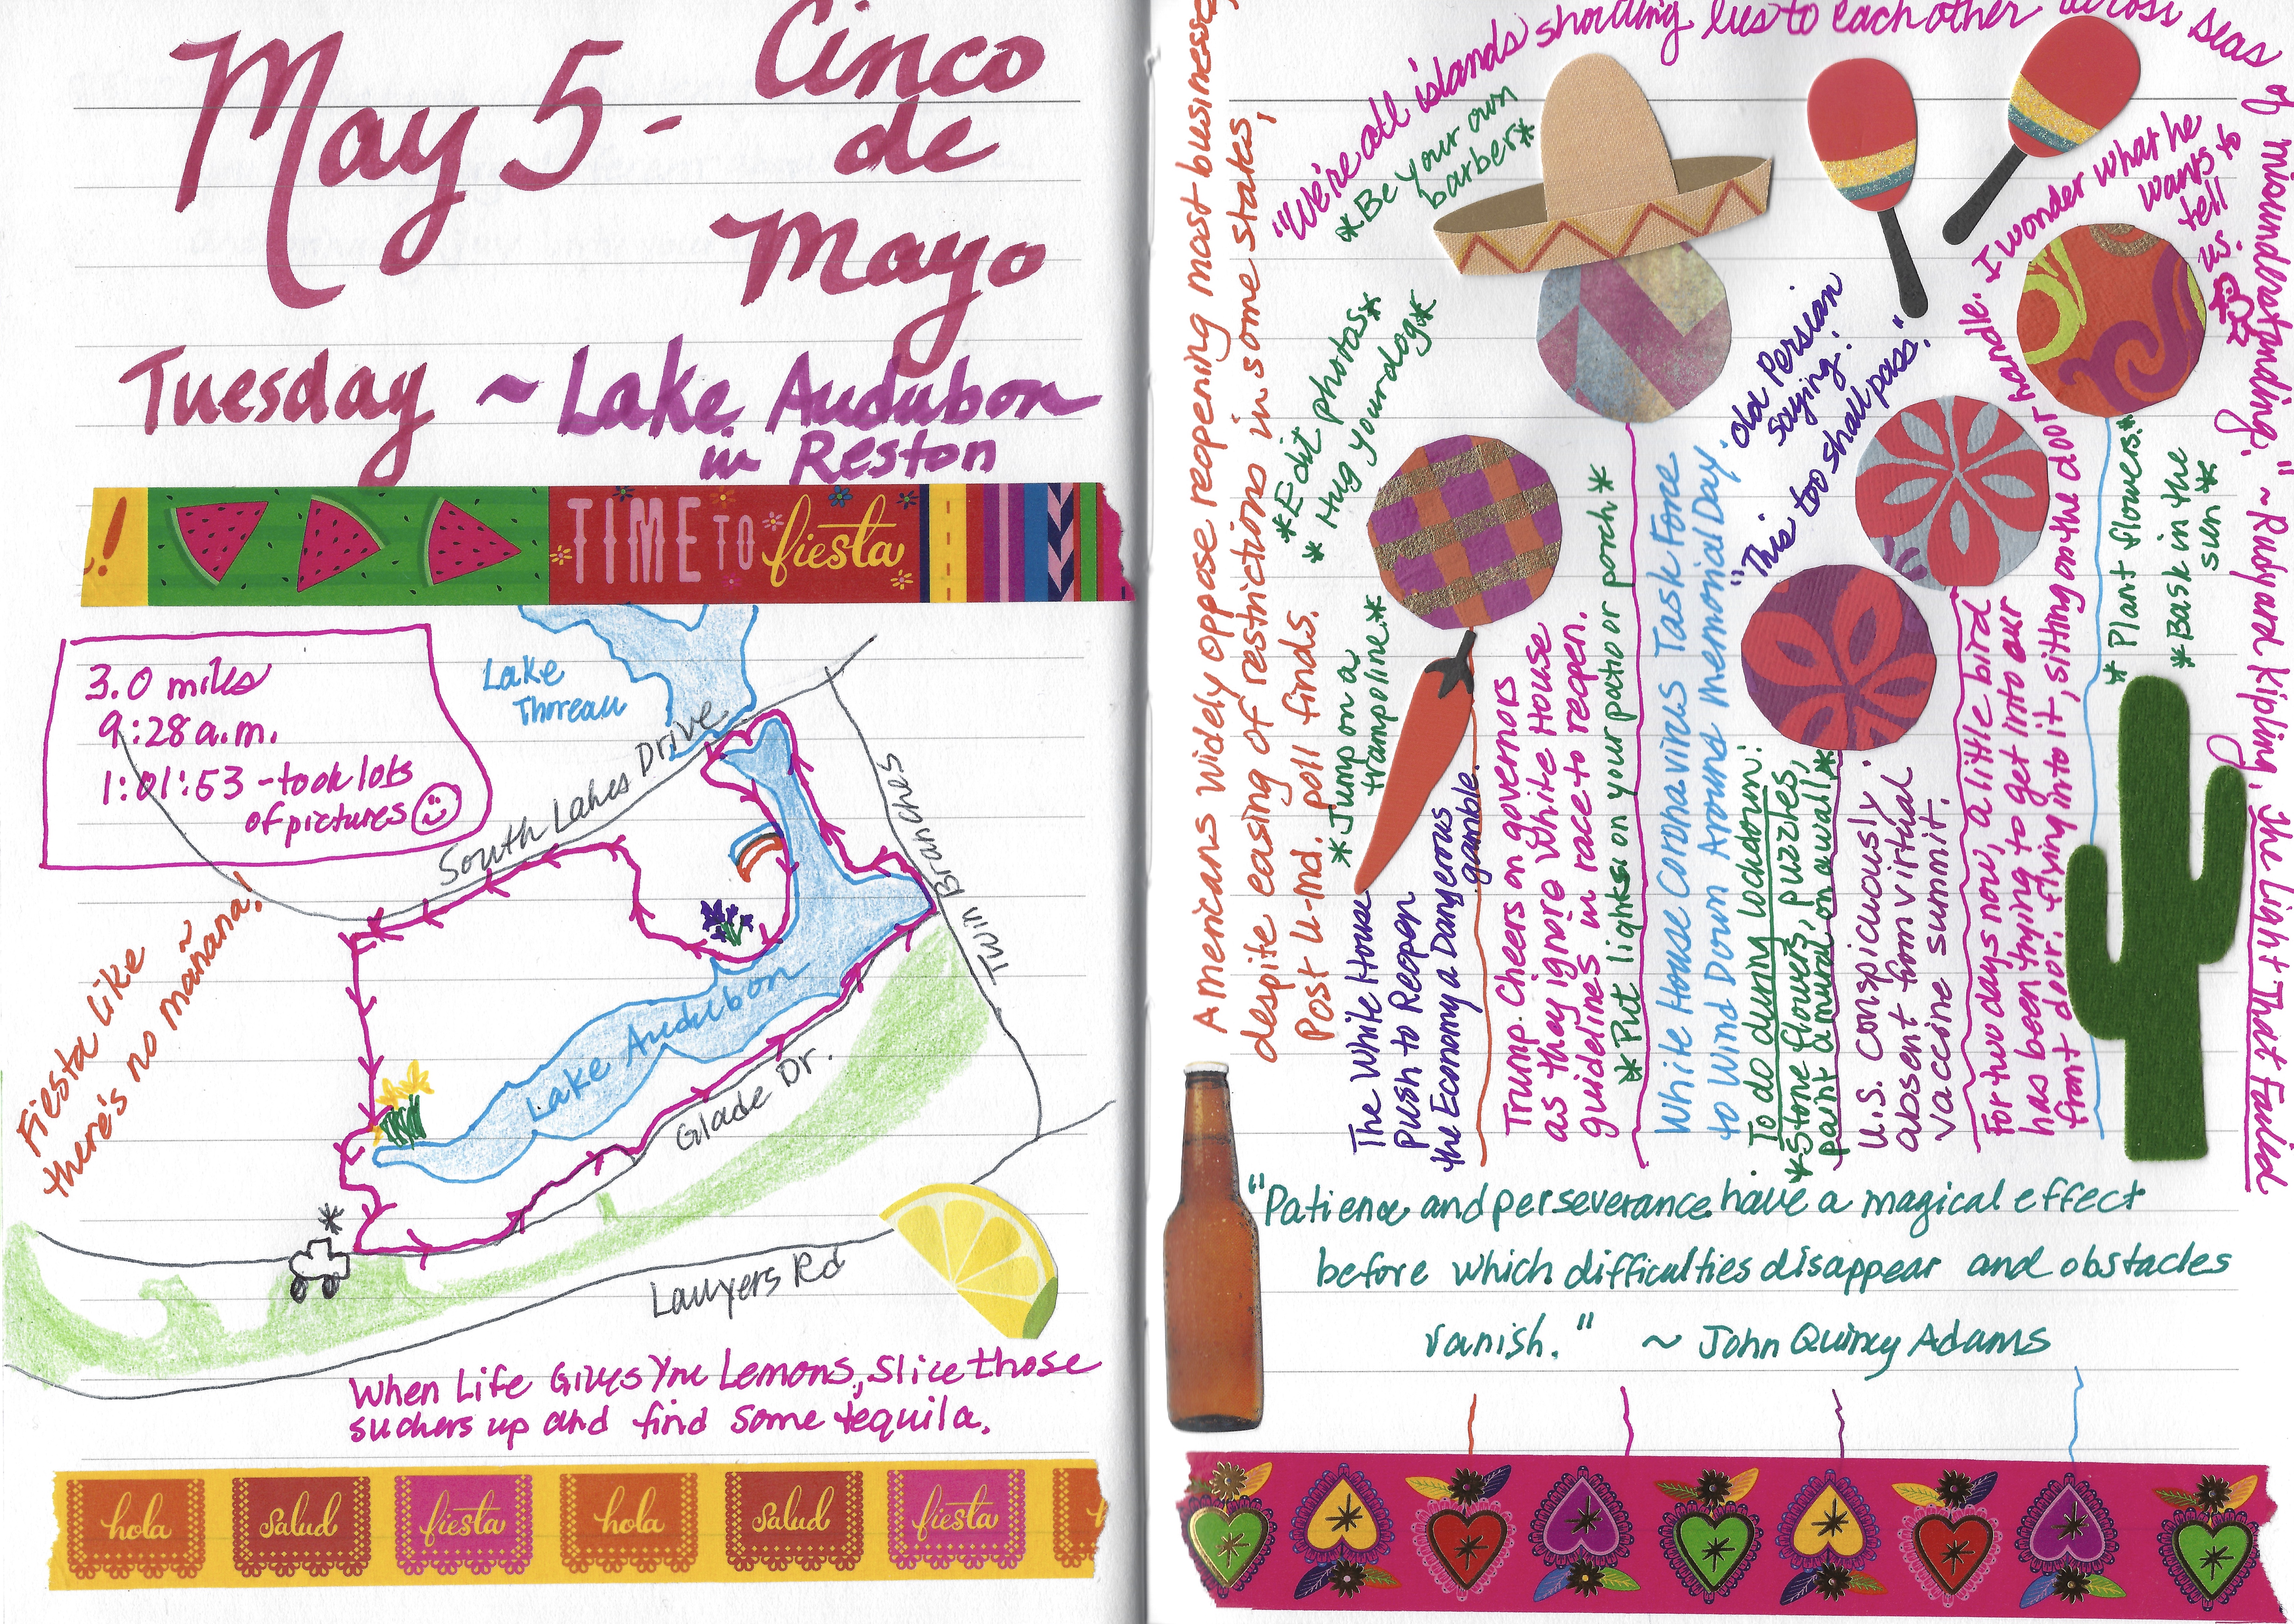 May 5 - Cinco
de
Mayo
Tuesday ~ Lake Audubon
in Reston
!
TIME TO fiesta
3.0 miles
9:28 a.m.
1:01:53 - took lots
of pictures
Lake
Thoreau
South Lakes Drive
Twin Branches
Lake Audubon
Glade Dr.
Lawyers Rd
Fiesta like
there's no mañana!
When Life Gives You Lemons, Slice those
suckers up and find some tequila.
hola
salud
fiesta
hola
salud
fiesta
h
Americans widely oppose reopening most businesses,
despite easing of restrictions in some states,
Post U-Md. poll finds.
"We're all islands shouting lies to each other across seas of misunderstanding." ~ Rudyard Kipling, The Light That Failed
*Be your own
barber*
*Edit photos*
*Hug your dog*
*Jump on a
trampoline*
The White House
Push to Reopen
the Economy a Dangerous
gamble.
Trump Cheers on governors
as they ignore White House
guidelines in race to reopen.
*Put lights on your patio or porch*
White House Coronavirus Task Force
to Wind Down Around Memorial Day.
old Persian
saying:
"This too shall pass."
To do during lockdown:
*Stone flowers, puzzles,
paint a mural on a wall*
U.S. conspicuously
absent from virtual
vaccine summit.
For two days now, a little bird
has been trying to get into our
front door, flying into it, sitting on the door handle. I wonder what he
wants to
tell
us.
*Plant flowers*
*Bask in the
sun*
"Patience and perseverance have a magical effect
before which difficulties disappear and obstacles
vanish." ~ John Quincy Adams